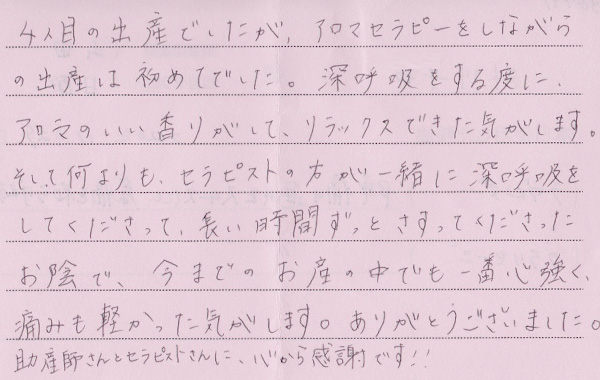 4人目の出産でしたが、アロマセラピーをしながら
の出産は初めてでした。深呼吸をする度に、
アロマのいい香りがして、リラックスできた気がします。
そして何よりも、セラピストの方が一緒に深呼吸を
してくださって、長い時間ずっとさすってくださった
お陰で、今までのお産の中でも一番心強く、
痛みも軽かった気がします。ありがとうございました。
助産師さんとセラピストさんに、心から感謝です!!